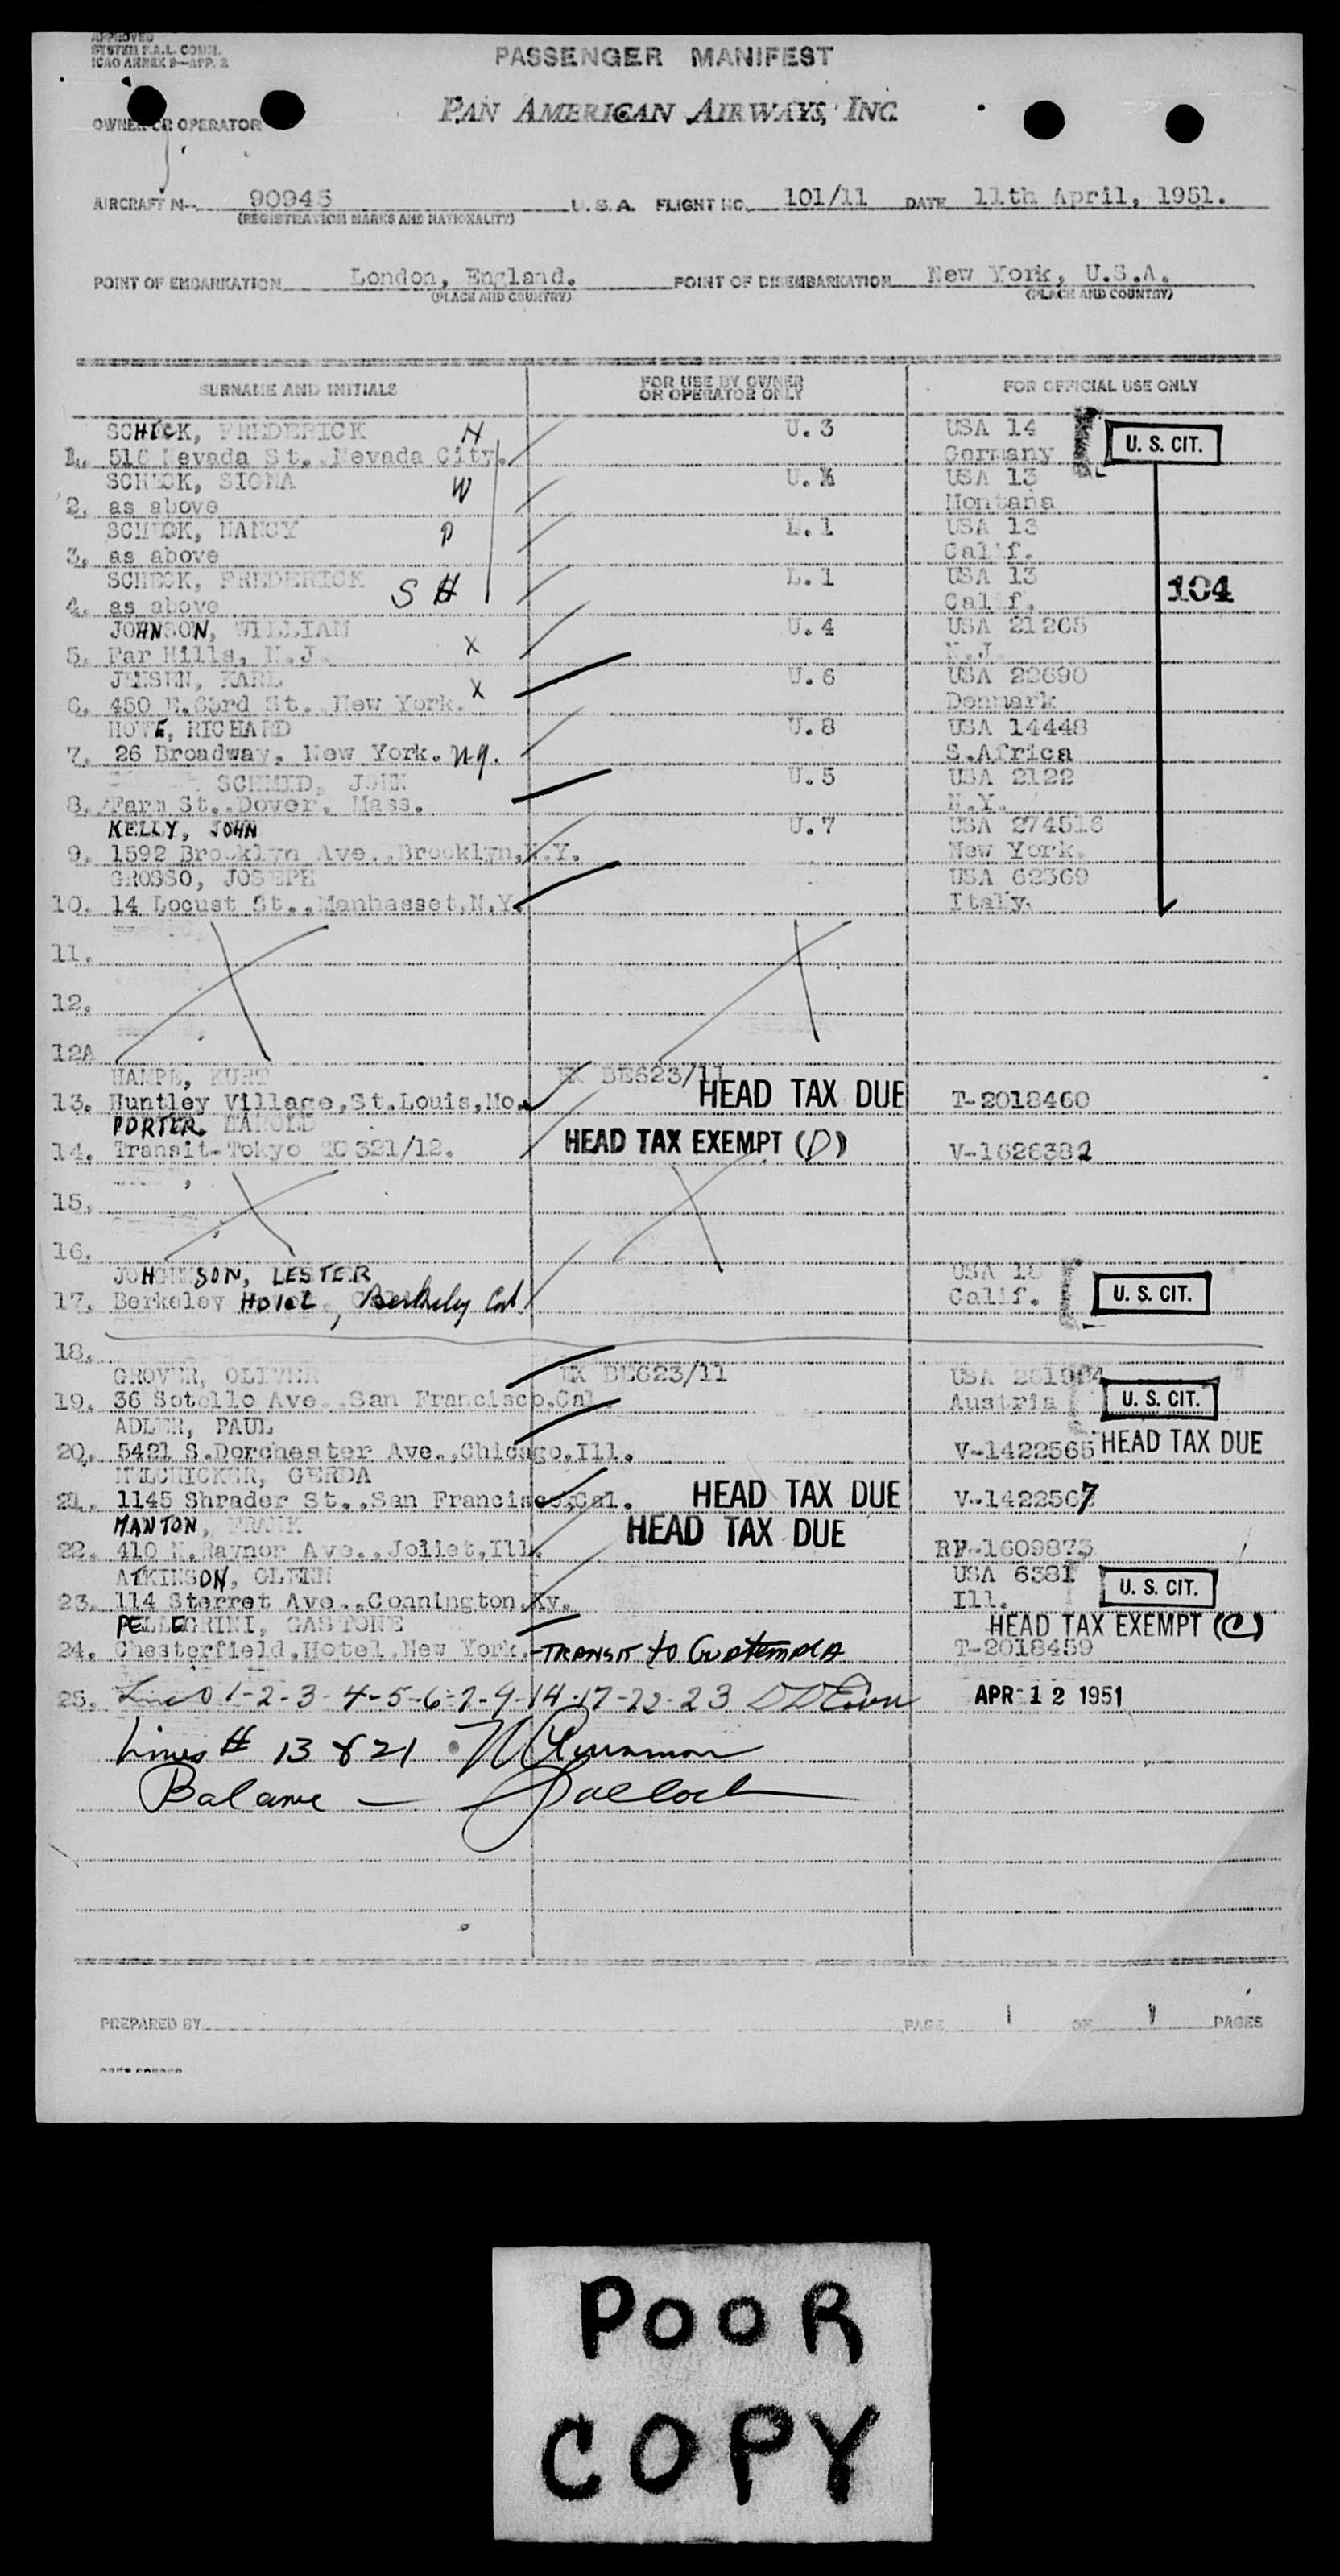 APPROVED
SYSTEM F.A.L. COMM.
ICAO ANNEX 9—APP. 2
PASSENGER MANIFEST
PAN AMERICAN AIRWAYS, INC.
OWNER OR OPERATOR
AIRCRAFT N-- 90945 U.S.A. FLIGHT NO. 101/11 DATE 11th April, 1951.
(REGISTRATION MARKS AND NATIONALITY)
POINT OF EMBARKATION London, England. POINT OF DISEMBARKATION New York, U.S.A.
(PLACE AND COUNTRY) (PLACE AND COUNTRY)
SURNAME AND INITIALS FOR USE BY OWNER OR OPERATOR ONLY FOR OFFICIAL USE ONLY
SCHICK, FREDERICK H U.3 USA 14
1. 516 Nevada St., Nevada City. Germany U. S. CIT.
W USA 13
2. as above Montana
NANCY D L.1 USA 13
3. as above Calif.
FREDERICK S H L.1 USA 13
4. as above Calif. 104
JOHNSON, WILLIAM X U.4 USA 21205
5. Far Hills, N.J. N.J.
JENSEN, KARL X U.6 USA 22690
6. 450 E.63rd St., New York. Denmark
HOWE, RICHARD U.8 USA 14448
7. 26 Broadway, New York. N.Y. S.Africa
SCHMID, JOHN U.5 USA 2122
8. Farm St., Dover, Mass. N.Y.
KELLY, JOHN U.7 USA 274516
9. 1592 Brooklyn Ave., Brooklyn, N.Y. New York.
GROSSO, JOSEPH USA 62369
10. 14 Locust St., Manhasset, N.Y. Italy.
11.
12.
12A
HAMPL, KURT EX BE623/11
13. Huntley Village, St.Louis, Mo. HEAD TAX DUE T-2018460
PORTER, HAROLD
14. Transit-Tokyo TO 321/12. HEAD TAX EXEMPT (D) V-1626382
15.
16.
SON, LESTER USA
17. Berkeley HOTEL, Berkeley Cal. Calif. U. S. CIT.
18.
GROVER, OLIVER EX BE623/11 USA
19. 36 Sotello Ave., San Francisco, Cal. Austria U. S. CIT.
ADLER, PAUL
20. 5421 S.Dorchester Ave., Chicago, Ill. V-1422565 HEAD TAX DUE
GERDA
21. 1145 Shrader St., San Francisco, Cal. HEAD TAX DUE V-1422567
MANTON, FRANK HEAD TAX DUE
22. 410 N.Raynor Ave., Joliet, Ill. RP-1609873
ATKINSON, GLENN USA 6381
23. 114 Sterret Ave., Connington, Ky. Ill. U. S. CIT.
PELLEGRINI, GASTONE HEAD TAX EXEMPT (C)
24. Chesterfield, Hotel, New York. -TRANSIT to GUATEMALA T-2018459
25. Lines 1-2-3-4-5-6-7-9-14-17-22-23 APR 12 1951
Lines # 13 & 21
Balance —
PREPARED BY PAGE 1 OF 1 PAGES
POOR
COPY